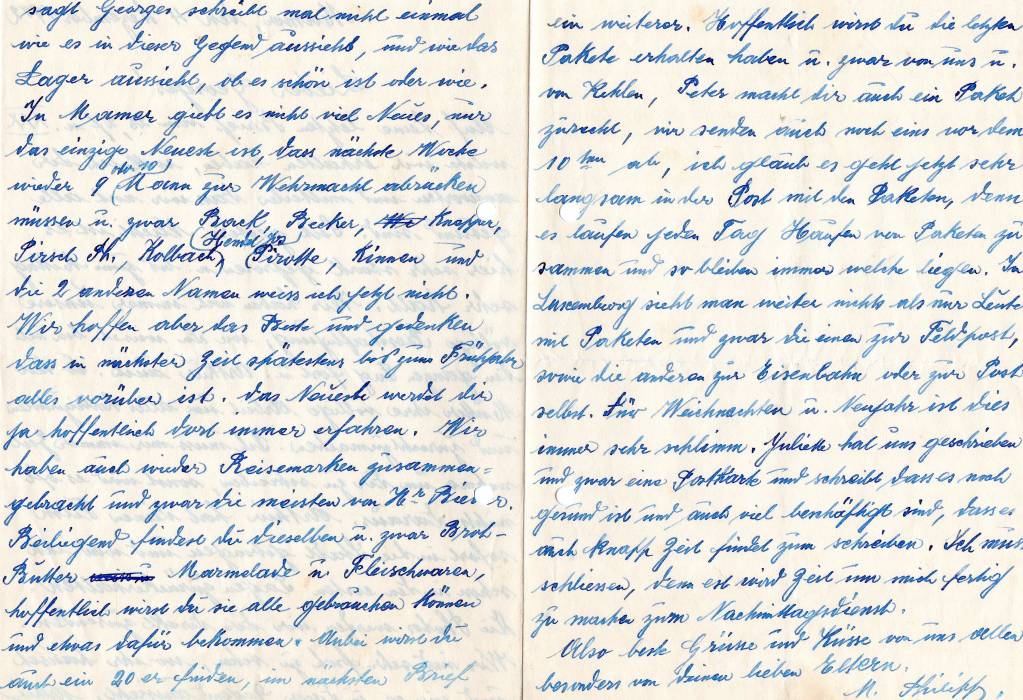 sagt Georges schreibt mal nicht einmal
wie es in dieser Gegend aussieht, und wie das
Lager aussieht, ob es schön ist oder wie.
In Mamer giebt es nicht viel Neues, nur
das einzige Neueste ist, dass nächste Woche
oder 10
wieder 9 Mann zur Wehrmacht abrücken
müssen u. zwar Back, Becker, Knepper,
Hemel
Pirsch, Kolbach, Pirotte, Kinnen und
die 2 anderen Namen weiss ich jetzt nicht.
Wir hoffen aber das Beste und gedenken
dass in nächster Zeit spätestens bis zum Frühjahr
alles vorüber ist. Das Neueste werdet ihr
ja hoffentlich dort immer erfahren. Wir
haben auch wieder Reisemarken zusammen=
gebracht und zwar die meisten von Hr
Beiliegend findest du dieselben u. zwar Brot-
Butter Marmelade u Fleischwaren,
hoffentlich wirst du sie alle gebrauchen können
und etwas dafür bekommen. Anbei wirst du
auch ein 20 er finden, im nächsten Brief
ein weiterer. Hoffentlich wirst du die letzten
Pakete erhalten haben u. zwar von uns u.
von Kehlen, Peter macht dir auch ein Paket
zurecht, wir senden auch noch eins vor dem
10 ten ab, ich glaub es geht jetzt sehr
langsam in der Post mit den Paketen, denn
es laufen jeden Tag Haufen von Paketen zu
sammen und so bleiben immer welche liegen. In
Luxemburg sieht man weiter nichts als nur Leute
mit Paketen und zwar die einen zur Feldpost,
sowie die anderen zur Eisenbahn oder zur Post
selbst. Für Weihnachten u. Neujahr ist dies
immer sehr schlimm. Juliette hat uns geschrieben
und zwar eine Postkarte und schreibt dass es noch
gesund ist und auch viel benhäftigt sind, dass es
auch knapp Zeit findet zum schreiben. Ich muss
schliesen, denn est wird Zeit um mich fertig
zu machen zum Nachmittagsdienst.
Also beste Grüsse und Küsse von uns allen
besonders von deinen lieben Eltern.
M. Philipp,